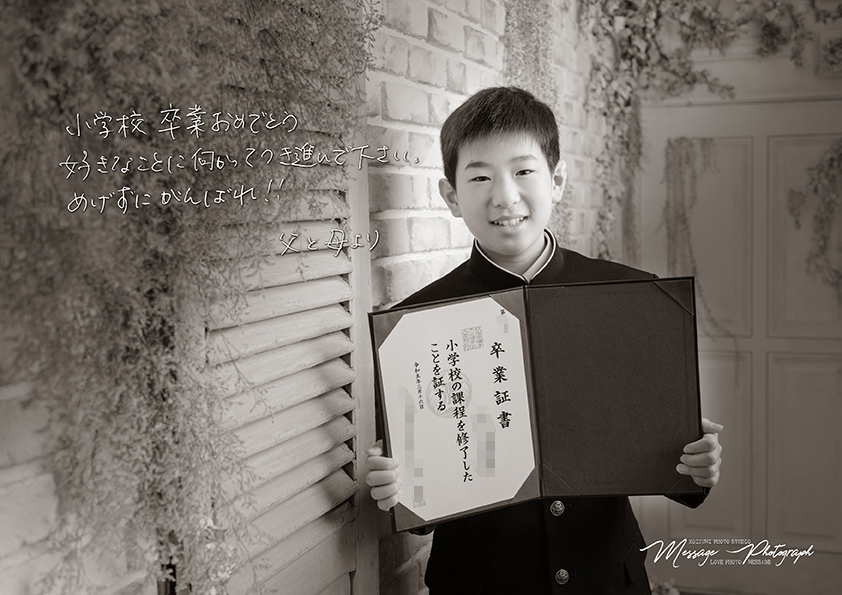 小学校 卒業おめでとう
好きなことに向かってつき進んで下さい。
めげずにがんばれ!!
父と母より
第
卒業証書
小学校の課程を修了した
ことを証する
令和五年三月十六日
KOIZUMI PHOTO STUDIO
Message Photograph
LOVE PHOTO MESSAGE